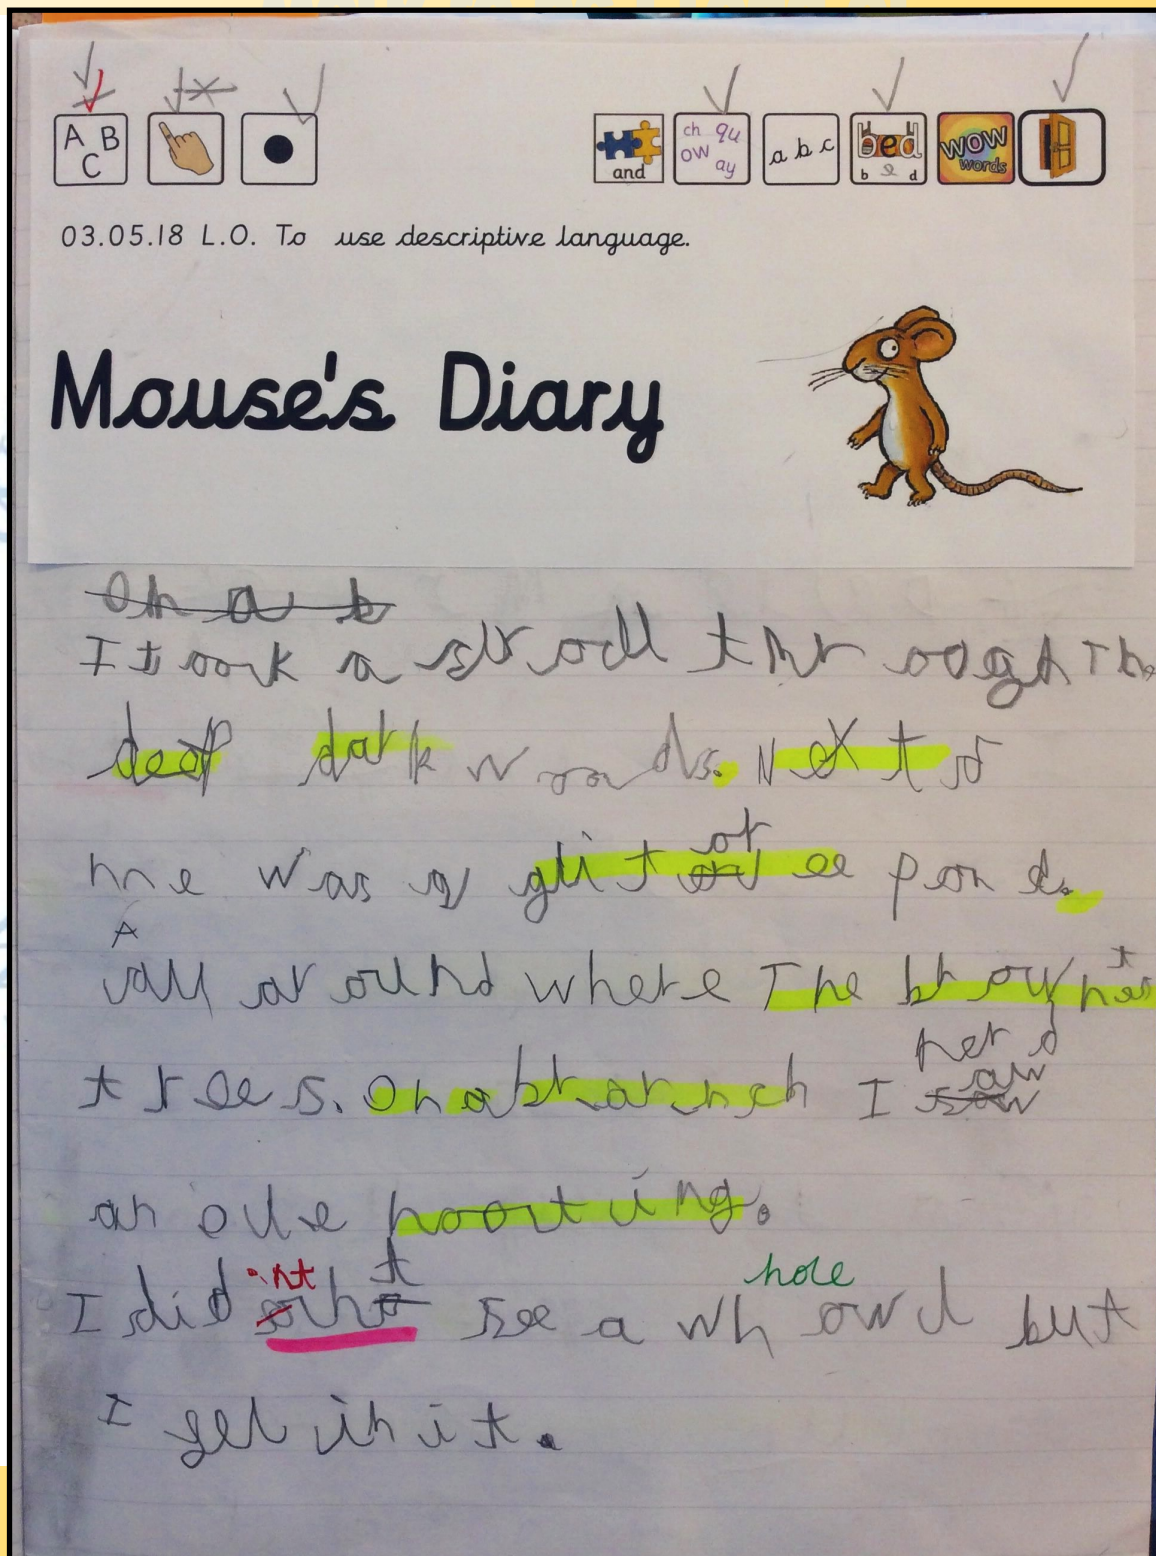 A B C
and
ch qu ow ay
a b c
bed
b e d
wow words
03.05.18 L.O. To use descriptive language.
Mouse's Diary
On a b
I took a stroll throogh The
deep dark woods. Next to
me was a glitoree pond.
A
all around where The brow
trees. On a branch I
herd
saw
an oule hooting.
nt t hole
I did see a whowl but
I get in it.